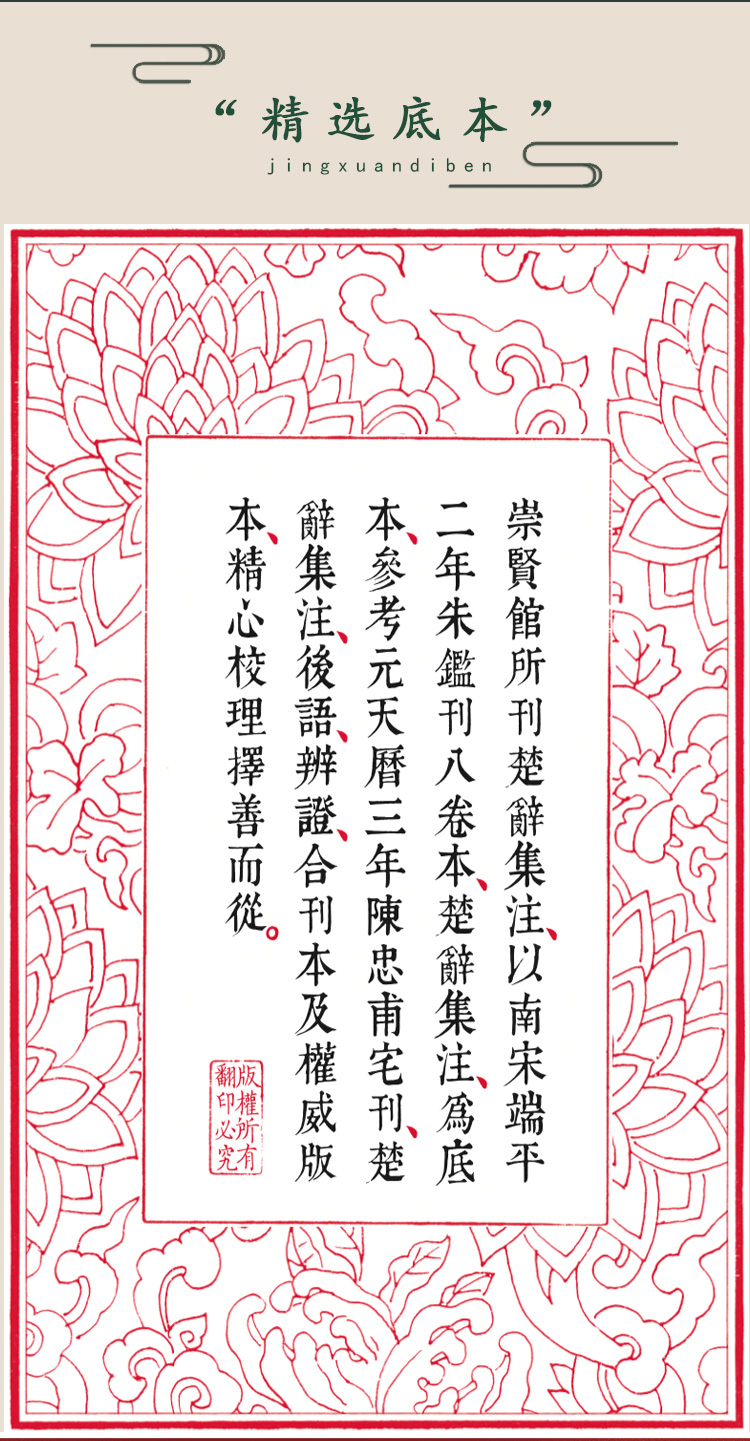 “精选底本”
jingxuandiben
崇賢館所刊楚辭集注、以南宋端平
二年朱鑑刊八卷本、楚辭集注、爲底
本、參考元天曆三年陳忠甫宅刊、楚
辭集注、後語、辨證、合刊本及權威版
本、精心校理擇善而從。
版權所有
翻印必究